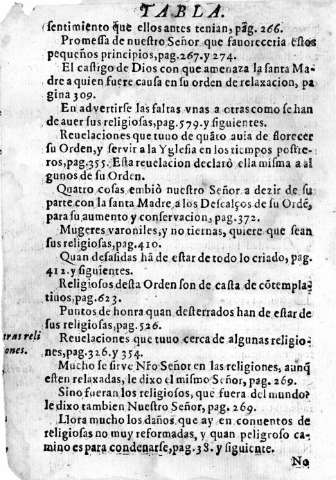 TABLA.
sentimiento que ellos antes tenian, pag. 266.
Promessa de nuestro Señor que fauoreceria estos
pequeños principios, pag. 267. y 274.
El castigo de Dios con que amenaza la santa Ma-
dre a quien fuere causa en su orden de relaxacion, pa
gina 309.
En advertirse las faltas vnas a otras como se han
de auer sus religiosas, pag. 579. y siguientes.
Reuelaciones que tuuo de quãto auia de florecer
su Orden, y servir a la Yglesia en los tiempos postre-
ros, pag. 355. Esta reuelacion declarò ella misma a al
gunos de su Orden.
Quatro cosas embiò nuestro Señor a dezir de su
parte con la santa Madre a los Descalços de su Ordẽ,
para su aumento y conservacion, pag. 372.
Mugeres varoniles, y no tiernas, quiere que sean
sus religiosas, pag. 410.
Quan desasidas hã de estar de todo lo criado, pag.
412. y siguientes.
Religiosos desta Orden son de casta de cõtempla-
tiuos, pag. 623.
Puntos de honra quan desterrados han de estar de
sus religiosas, pag. 526.
tras reli
ones.
Reuelaciones que tuuo cerca de algunas religio-
nes, pag. 326. y 354.
Mucho se sirve Nro Señor en las religiones, aunq̃
esten relaxadas, le dixo el mismo Señor, pag. 269.
Sino fueran los religiosos, que fuera del mundo?
le dixo tambien Nuestro Señor, pag. 269.
Llora mucho los daños que ay en conuentos de
religiosas no muy reformadas, y quan peligroso ca-
mino es para condenarse, pag. 38. y siguiente.
No